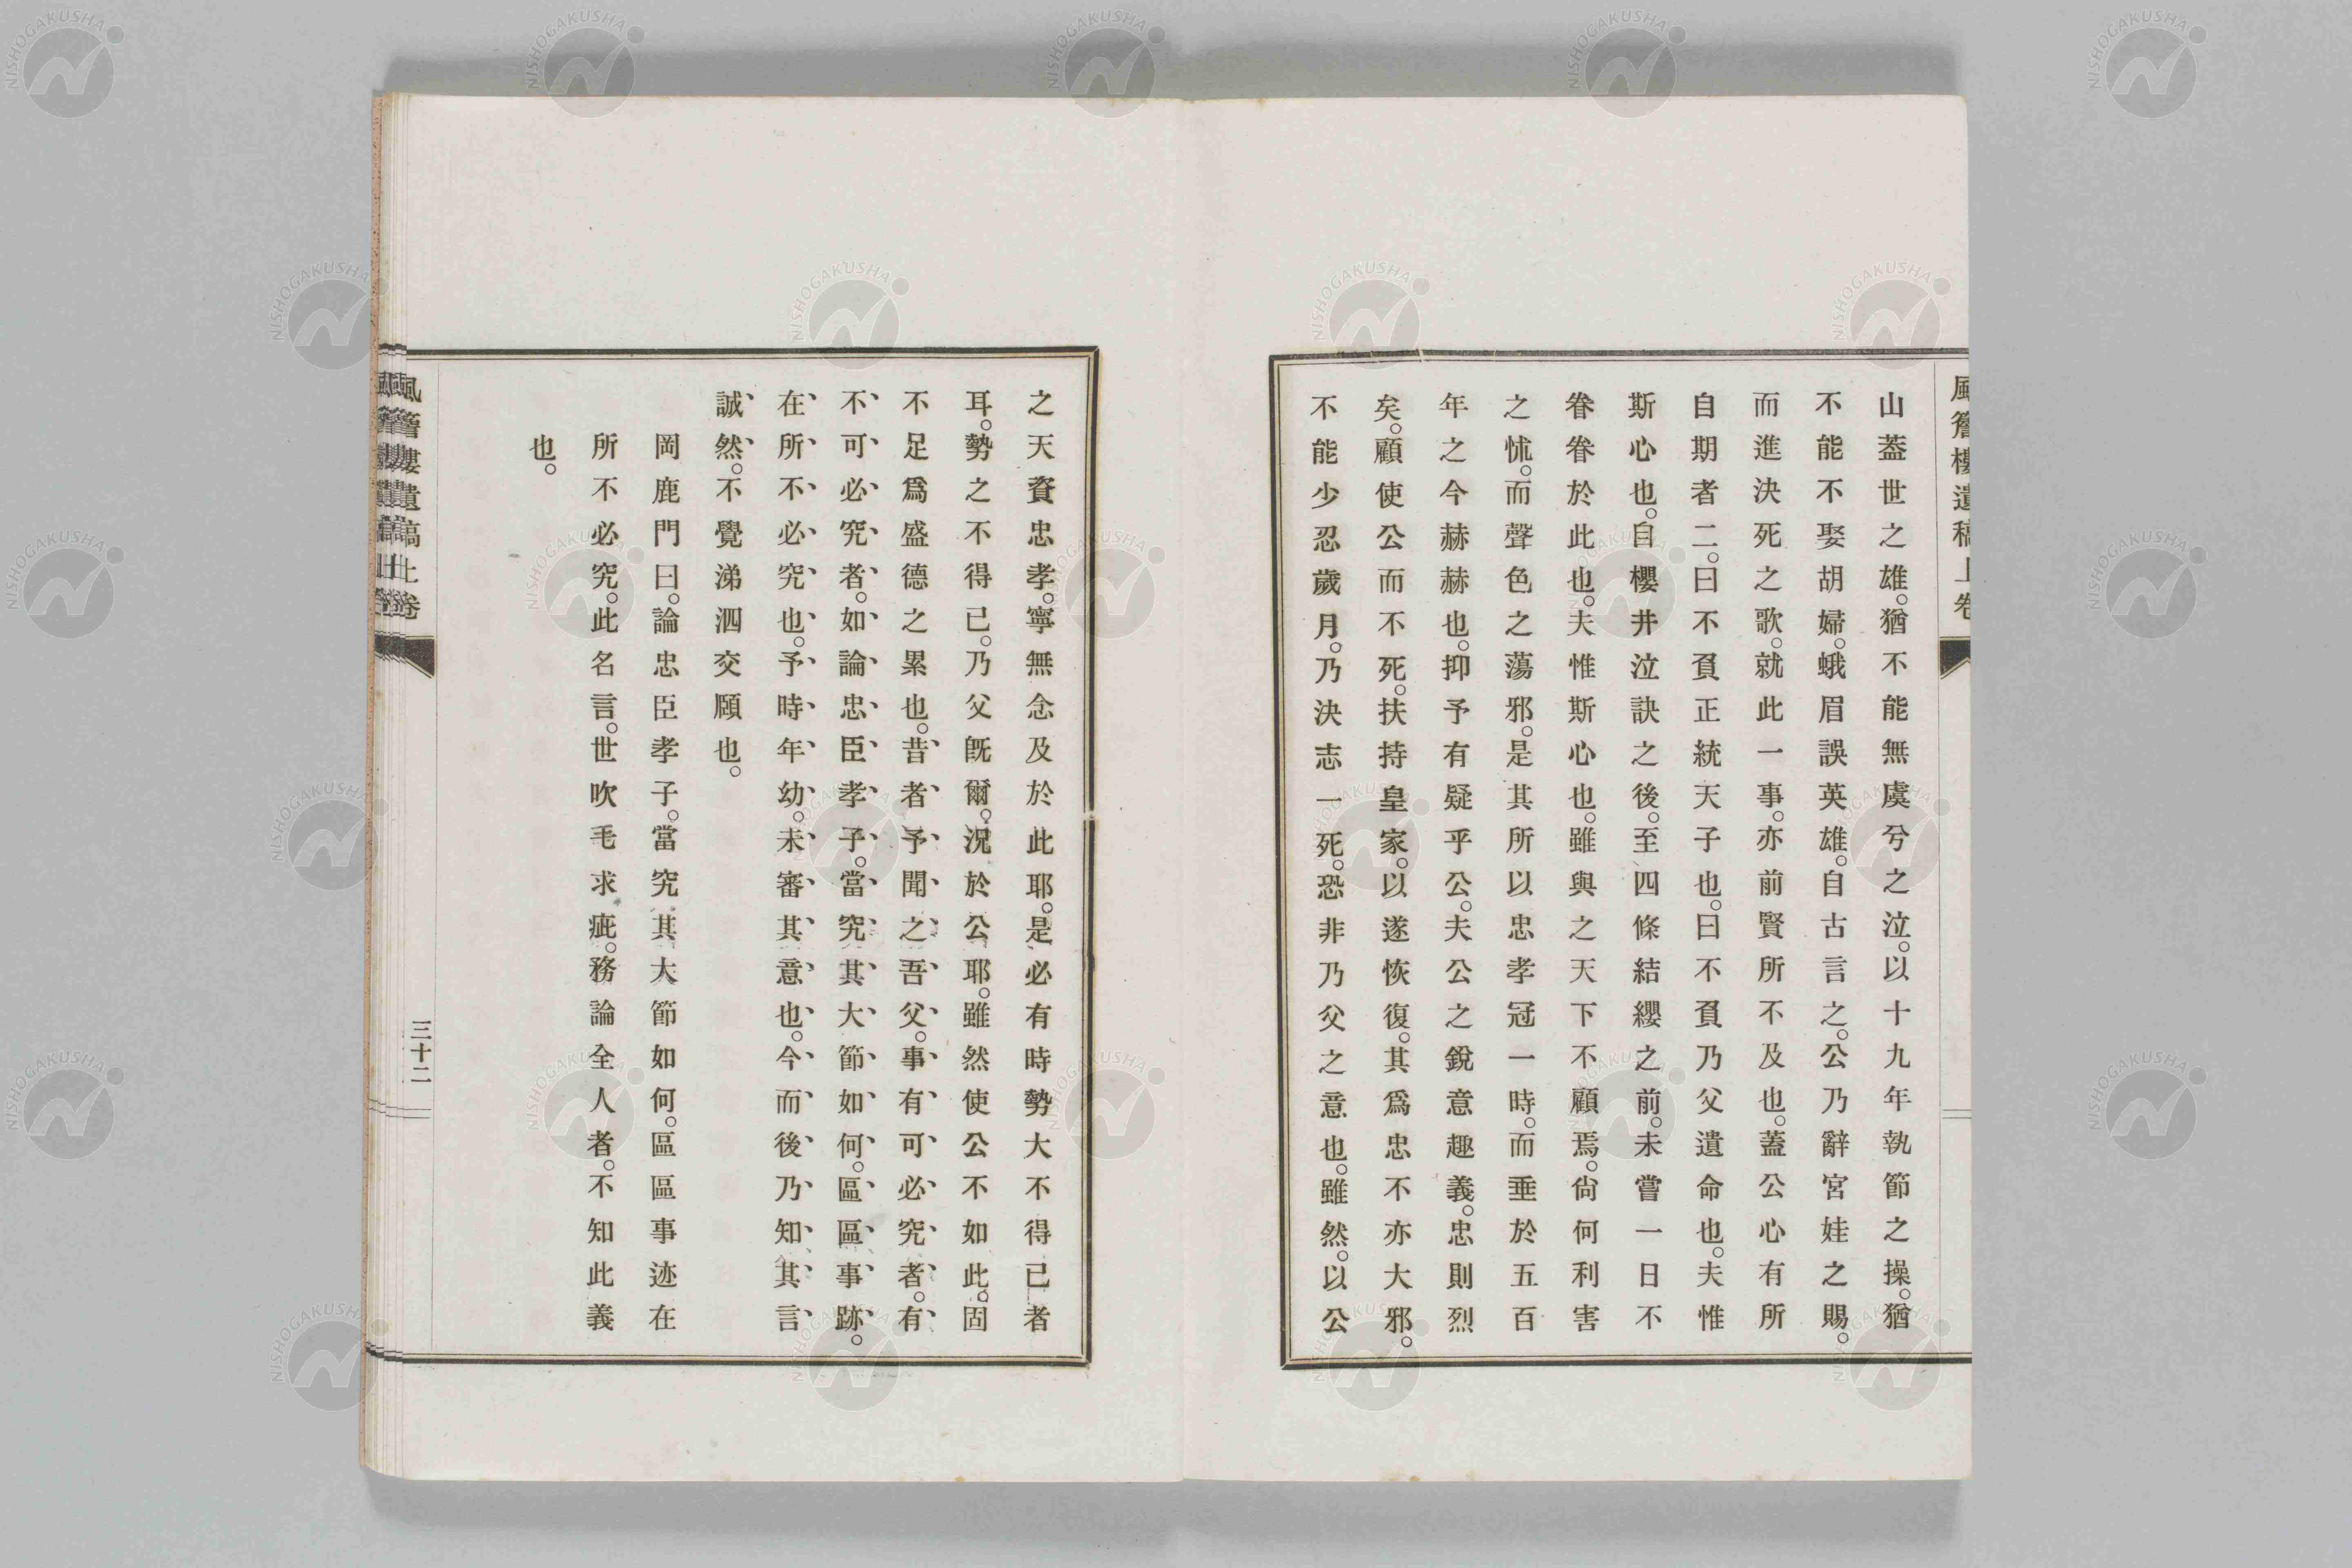 風簷樓遺稿上卷
山蓋世之雄。猶不能無虞兮之泣。以十九年執節之操。猶
不能不娶胡婦。蛾眉誤英雄。自古言之。公乃辭宮娃之賜。
而進決死之歌。就此一事。亦前賢所不及也。蓋公心有所
自期者二。曰不負正統天子也。曰不負乃父遺命也。夫惟
斯心也。自櫻井泣訣之後。至四條結纓之前。未嘗一日不
眷眷於此也。夫惟斯心也。雖與之天下不顧焉。尙何利害
之怵。而聲色之蕩邪。是其所以忠孝冠一時。而垂於五百
年之今赫赫也。抑予有疑乎公。夫公之銳意趣義。忠則烈
矣。顧使公而不死。扶持皇家。以遂恢復。其爲忠不亦大邪。
不能少忍歲月。乃決志一死。恐非乃父之意也。雖然。以公
之天資忠孝。寧無念及於此耶。是必有時勢大不得已者
耳。勢之不得已。乃父旣爾。況於公耶。雖然使公不如此。固
不足爲盛德之累也。昔者予聞之吾父。事有可必究者。有
不可必究者。如論忠臣孝子。當究其大節如何。區區事跡。
在所不必究也。予時年幼。未審其意也。今而後乃知其言
誠然。不覺涕泗交頤也。
岡鹿門曰。論忠臣孝子。當究其大節如何。區區事迹在
所不必究。此名言。世吹毛求疵。務論全人者。不知此義
也。
風簷樓遺稿上卷
三十二
NISHOGAKUSHA